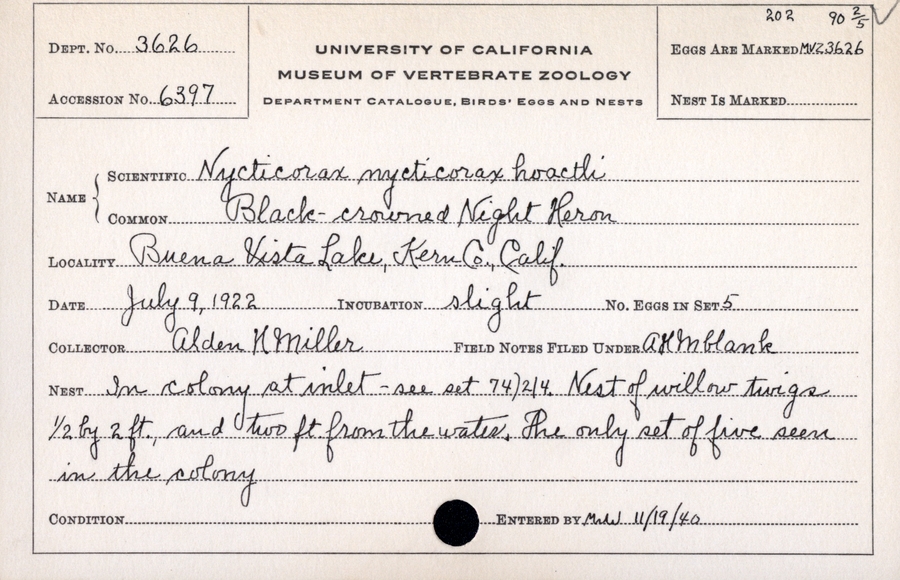 202 90 2/5
DEPT. No. 3626
UNIVERSITY OF CALIFORNIA
EGGS ARE MARKED MVZ3626
MUSEUM OF VERTEBRATE ZOOLOGY
ACCESSION No. 6397
DEPARTMENT CATALOGUE, BIRDS' EGGS AND NESTS
NEST IS MARKED
NAME
SCIENTIFIC Nycticorax nycticorax hoactli
COMMON Black-crowned Night Heron
LOCALITY Buena Vista Lake, Kern Co., Calif.
DATE July 9, 1922 INCUBATION slight No. EGGS IN SET 5
COLLECTOR Alden H Miller FIELD NOTES FILED UNDER AHM blank
NEST In colony at inlet - see set 74)2/4. Nest of willow twigs
1/2 by 2 ft., and two ft from the water. The only set of five seen
in the colony
CONDITION ENTERED BY 11/19/40